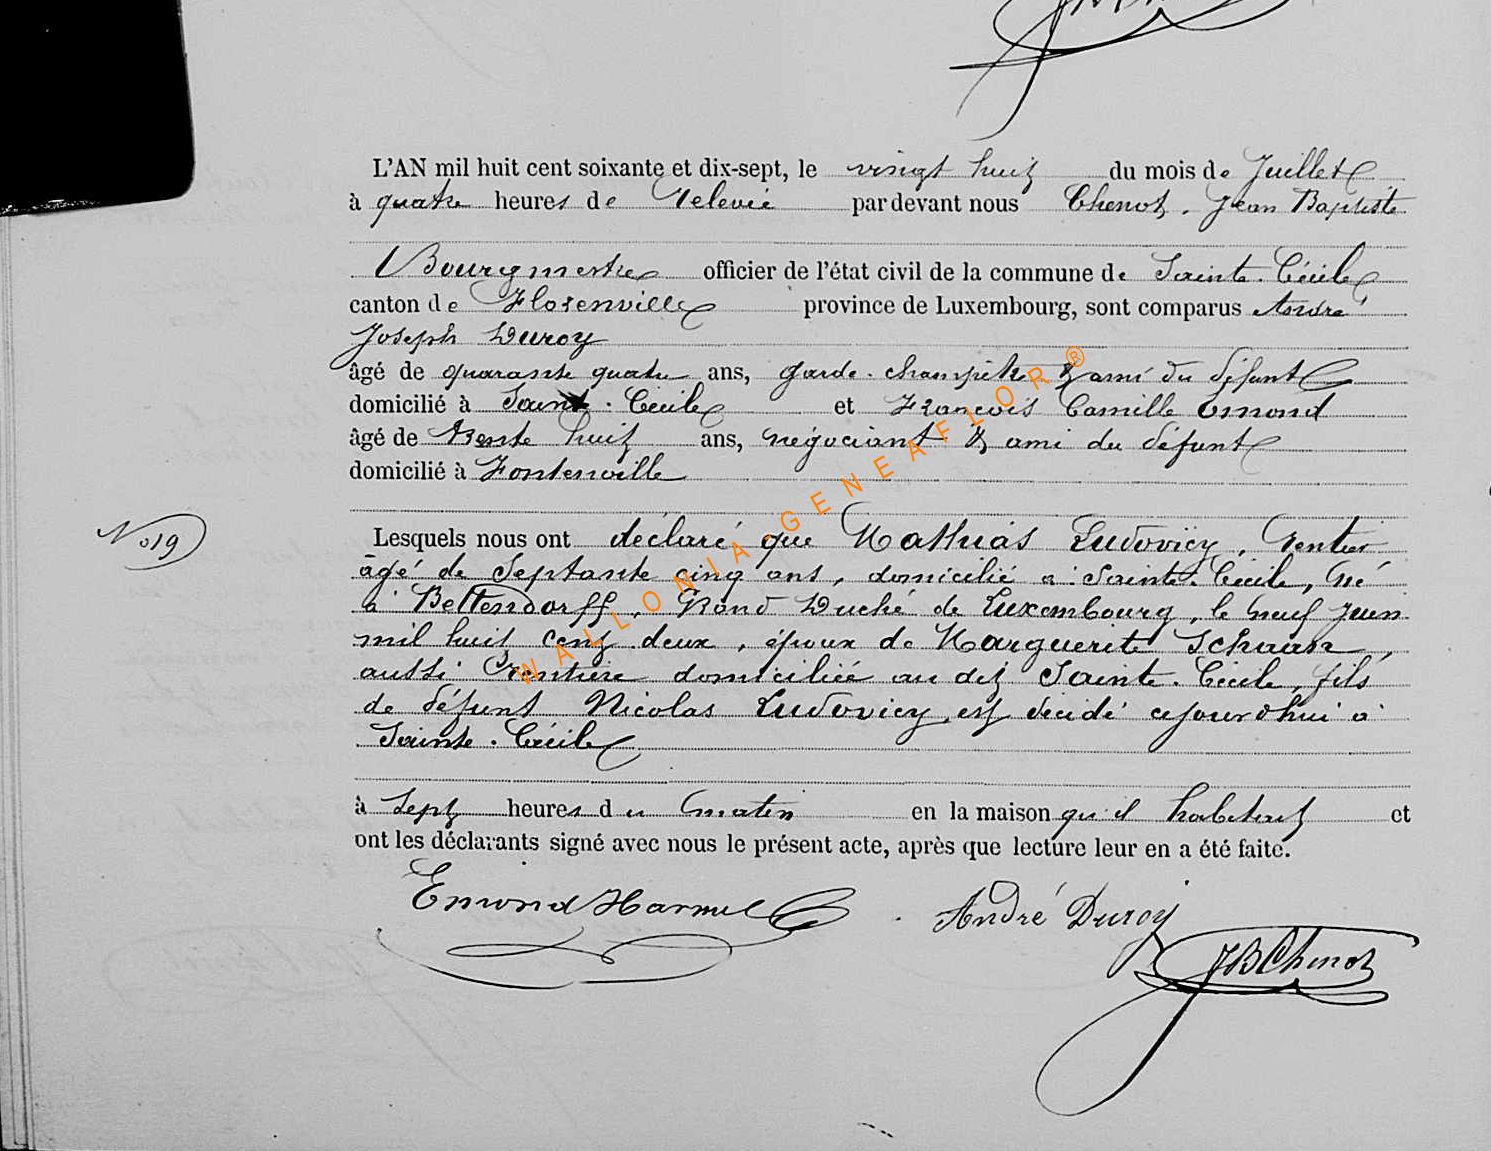 L'AN mil huit cent soixante et dix-sept, le vingt huit du mois de Juillet
à quatre heures de relevée par devant nous Chenot, Jean Baptiste
Bourgmestre officier de l'état civil de la commune de Sainte-Cécile
canton de Florenville province de Luxembourg, sont comparus André
Joseph Duroy
âgé de quarante quatre ans, garde-champêtre & ami du défunt
domicilié à Sainte-Cécile et François Camille Emond
âgé de trente huit ans, négociant & ami du défunt
domicilié à Fontenoille
No 19
Lesquels nous ont déclaré que Mathias Ludovicy, rentier
âgé de septante cinq ans, domicilié à Sainte-Cécile, né
à Bettendorff, Grand Duché de Luxembourg, le neuf juin
mil huit cent deux, époux de Marguerite Schaan,
aussi rentière domiciliée au dit Sainte-Cécile, fils
de défunt Nicolas Ludovicy, est décidé cejourdhui à
Sainte-Cécile
à sept heures du matin en la maison qu'il habitait et
ont les déclarants signé avec nous le présent acte, après que lecture leur en a été faite.
Emond Harmel André Duroy
JB Chenot
WALLONIA-GENEAFLOR®